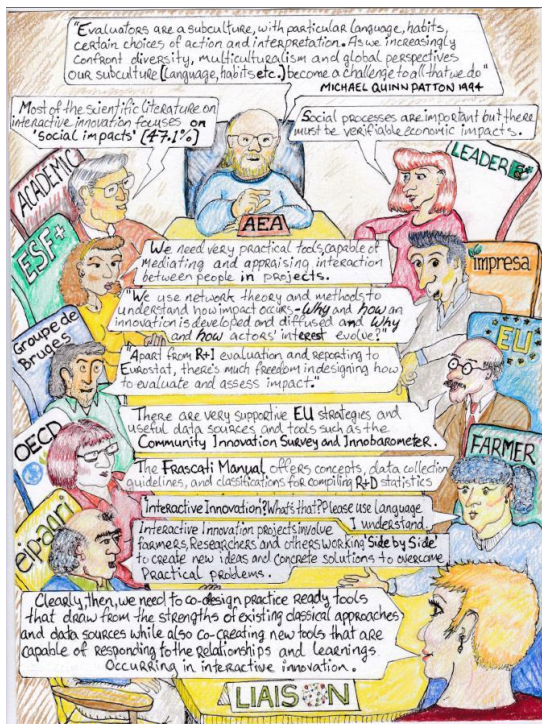 "Evaluators are a subculture, with particular language, habits,
certain choices of action and interpretation. As we increasingly
confront diversity, multiculturalism and global perspectives
our subculture (language, habits etc.) become a challenge to all that we do"
MICHAEL QUINN PATTON 1994
Most of the scientific literature on
interactive innovation focuses on
'social impacts' (47.1%)
Social processes are important but there
must be verifiable economic impacts.
ACADEMIC
LEADER
AEA
ESF+
We need very practical tools, capable of
mediating and appraising interaction
between people in projects.
impresa
"We use network theory and methods to
understand how impact occurs - Why and how an
innovation is developed and diffused and Why
and how actors' interest evolve?"
Groupe de
Bruges
EU
"Apart from R+I evaluation and reporting to
Eurostat, there's much freedom in designing how
to evaluate and assess impact."
There are very supportive EU strategies and
useful data sources and tools such as the
Community Innovation Survey and Innobarometer.
OECD
FARMER
The Frascati Manual offers concepts, data collection
guidelines, and classifications for compiling R+D statistics
'Interactive Innovation'? What's that? Please use language
I understand...
eip-agri
Interactive Innovation projects involve
farmers, Researchers and others working 'Side by Side'
to create new ideas and concrete solutions to overcome
Practical problems.
Clearly, then, we need to co-design practice ready tools
that draw from the strengths of existing classical approaches
and data sources while also co-creating new tools that are
capable of responding to the relationships and learnings
Occurring in interactive innovation.
LIAISON